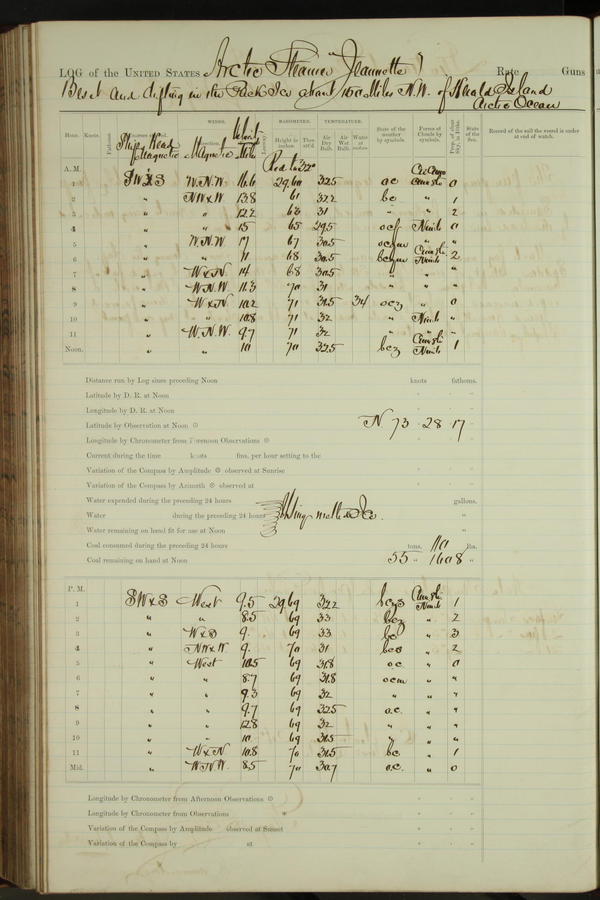 LOG of the UNITED STATES Arctic Steamer "Jeannette" Rate Guns
Beset and drifting in the Pack Ice about 160 Miles N.W. of Herald Island
Arctic Ocean
WINDS. BAROMETER. TEMPERATURE.
Hour. Knots. Fathoms. Ship's Head Magnetic Magnetic Velocity Miles Height in inches Ther. att'd. Air Dry Bulb. Air Wet Bulb. Water at surface State of the weather by symbols. Forms of Clouds by symbols. Prop. of clear Sky, in 10ths. State of the Sea. Record of the sail the vessel is under at end of watch.
A.M. Red to 32°
1 SW x S W.N.W. 16.6 29.60 32.5 oc 0
2 " NW x W 13.8 61 32.2 bc " 1
3 " " 12.2 63 31 " " 2
4 " " 15 65 29.5 ocf Nimb 0
5 " W.N.W. 17 67 30.5 ocqm " "
6 " " 11 68 30.5 bcqm Cum sti Nimb 2
7 " W x N. 14 68 30.5 " " "
8 " W.N.W. 11.3 70 31 " " "
9 " W x N 10.2 71 31.5 34 ocz " 0
10 " " 10.8 71 32 " Nimb "
11 " W.N.W. 9.7 71 32 " " "
Noon. " " 10 70 32.5 bcz Cum sti Nimb 1
Distance run by Log since preceding Noon knots fathoms.
Latitude by D. R. at Noon
Longitude by D. R. at Noon
Latitude by Observation at Noon N 73 28 17
Longitude by Chronometer from Forenoon Observations
Current during the time knots fms. per hour setting to the
Variation of the Compass by Amplitude observed at Sunrise
Variation of the Compass by Azimuth observed at
Water expended during the preceding 24 hours gallons.
Water during the preceding 24 hours Using melted Ice.
Water remaining on hand fit for use at Noon
Coal consumed during the preceding 24 hours tons. 110 lbs.
Coal remaining on hand at Noon 55 " 1608 "
P.M.
1 SW x S West 9.5 29.69 32.2 bczs Cum sti Nimb 1
2 " " 8.5 69 33 bcz " 2
3 " W x S 9. 69 33 bc " 3
4 " NW x W. 9. 70 31 bcs " 2
5 " West 10.5 69 31.8 o.c. " 0
6 " " 8.7 69 31.8 ocm " "
7 " " 9.3 69 32 " " "
8 " " 9.7 69 32.5 o.c. " "
9 " " 12.8 69 32 " " "
10 " " 10 69 31.5 " " "
11 " W x N 10.8 70 31.5 bc " 1
Mid. " W.N.W. 8.5 70 30.7 o.c. " 0
Longitude by Chronometer from Afternoon Observations
Longitude by Chronometer from Observations
Variation of the Compass by Amplitude observed at Sunset
Variation of the Compass by at